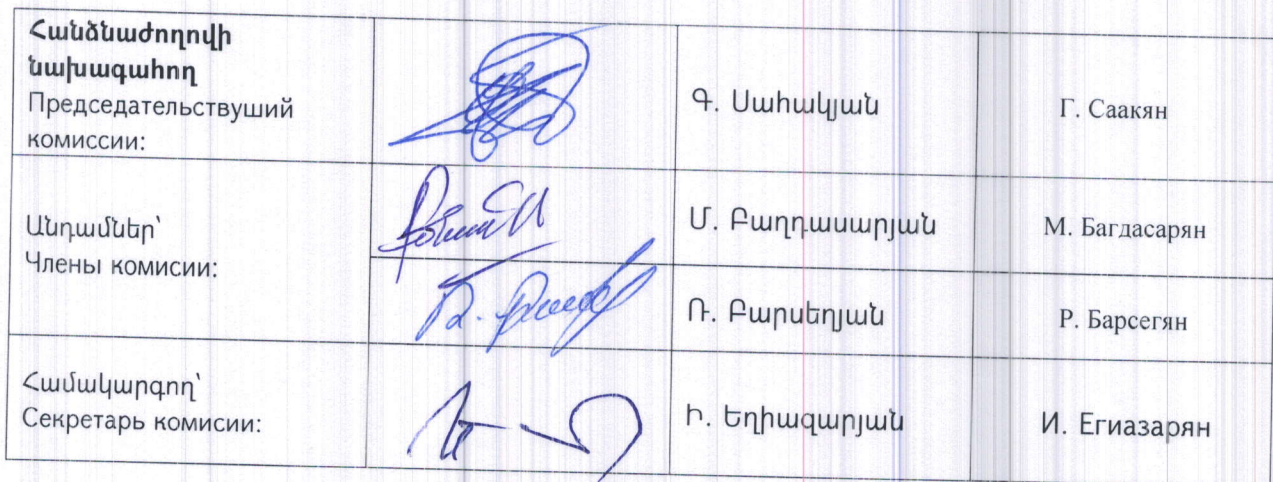 Հանձնաժողովի
նախագահող
Председательствуший
комиссии:
Գ. Սահակյան
Г. Саакян
Անդամներ՝
Члены комисии:
Մ. Բաղդասարյան
М. Багдасарян
Ռ. Բարսեղյան
Р. Барсегян
Համակարգող՝
Секретарь комисии:
Ի. Եղիազարյան
И. Егиазарян